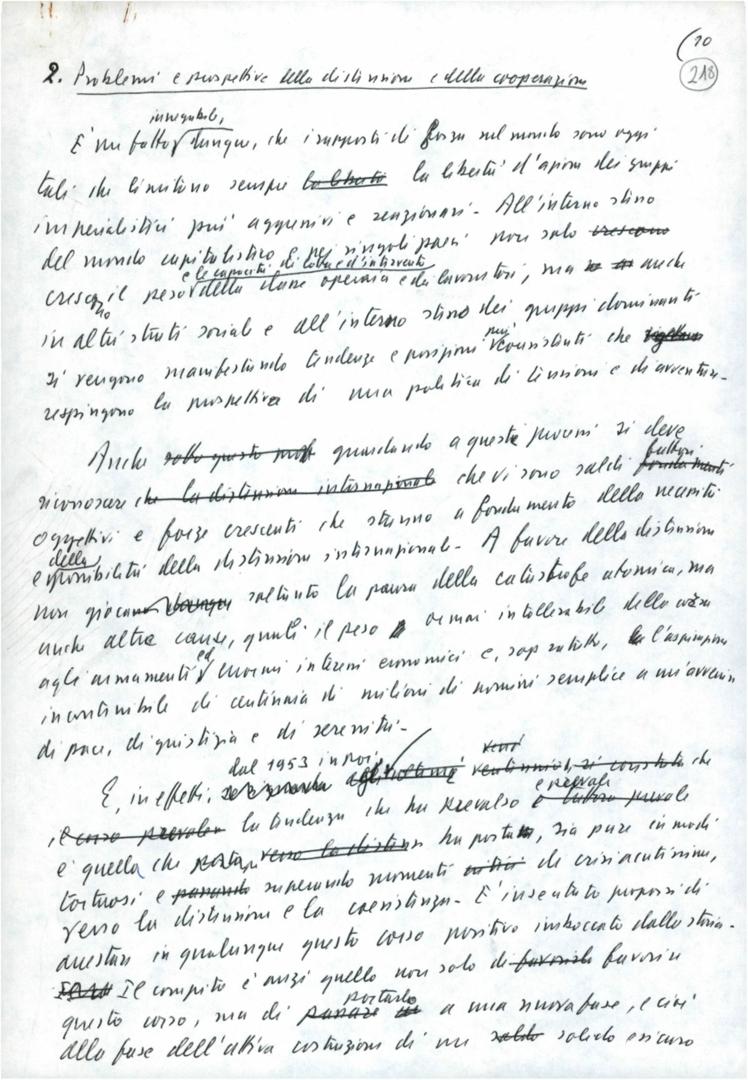 (10
218
2. Problemi e prospettive della distensione e della cooperazione
innegabile,
È un fatto dunque, che i rapporti di forza nel mondo sono oggi
tali che limitano sempre la libertà la libertà d'azione dei gruppi
imperialistici più aggressivi e reazionari. All'interno stesso
del mondo capitalistico e nei singoli paesi non solo crescono
e le capacità di lotta e d'intervento
crescono il peso della classe operaia e dei lavoratori, ma anche
in altri strati sociali e all'interno stesso dei gruppi dominanti
più
si vengono manifestando tendenze e posizioni consistenti che vogliono
respingono la prospettiva di una politica di tensioni e di avventure.
Anche sotto questo guardando a questi processi si deve
fattori
riconoscere che la distensione internazionale che vi sono saldi fondamenti
oggettivi e forze crescenti che stanno a fondamento della necessità
della
e possibilità della distensione internazionale. A favore della distensione
non giocano dunque soltanto la paura della catastrofe atomica, ma
anche altre cause, quali il peso ormai intollerabile della corsa
ed
agli armamenti enormi interessi economici e, soprattutto, l'aspirazione
incontenibile di centinaia di milioni di uomini semplice a un'avvenire
di pace, di giustizia e di serenità.
dal 1953 in poi,
E, in effetti, ventennio, si constata che
e prevale
il corso prevalen la tendenza che ha prevalso e tuttora prevale
è quella che porta verso la disten ha portato, sia pure in modi
tortuosi e passando superando momenti critici di crisi acutissime,
verso la distensione e la coesistenza. È insensato proporsi di
arrestare in qualunque questo corso positivo imboccato dalla storia.
Il compito è anzi quello non solo di favorire favorire
portarlo
questo corso, ma di passare a una nuova fase, e cioè
alla fase dell'attiva costruzione di un saldo solido e sicuro